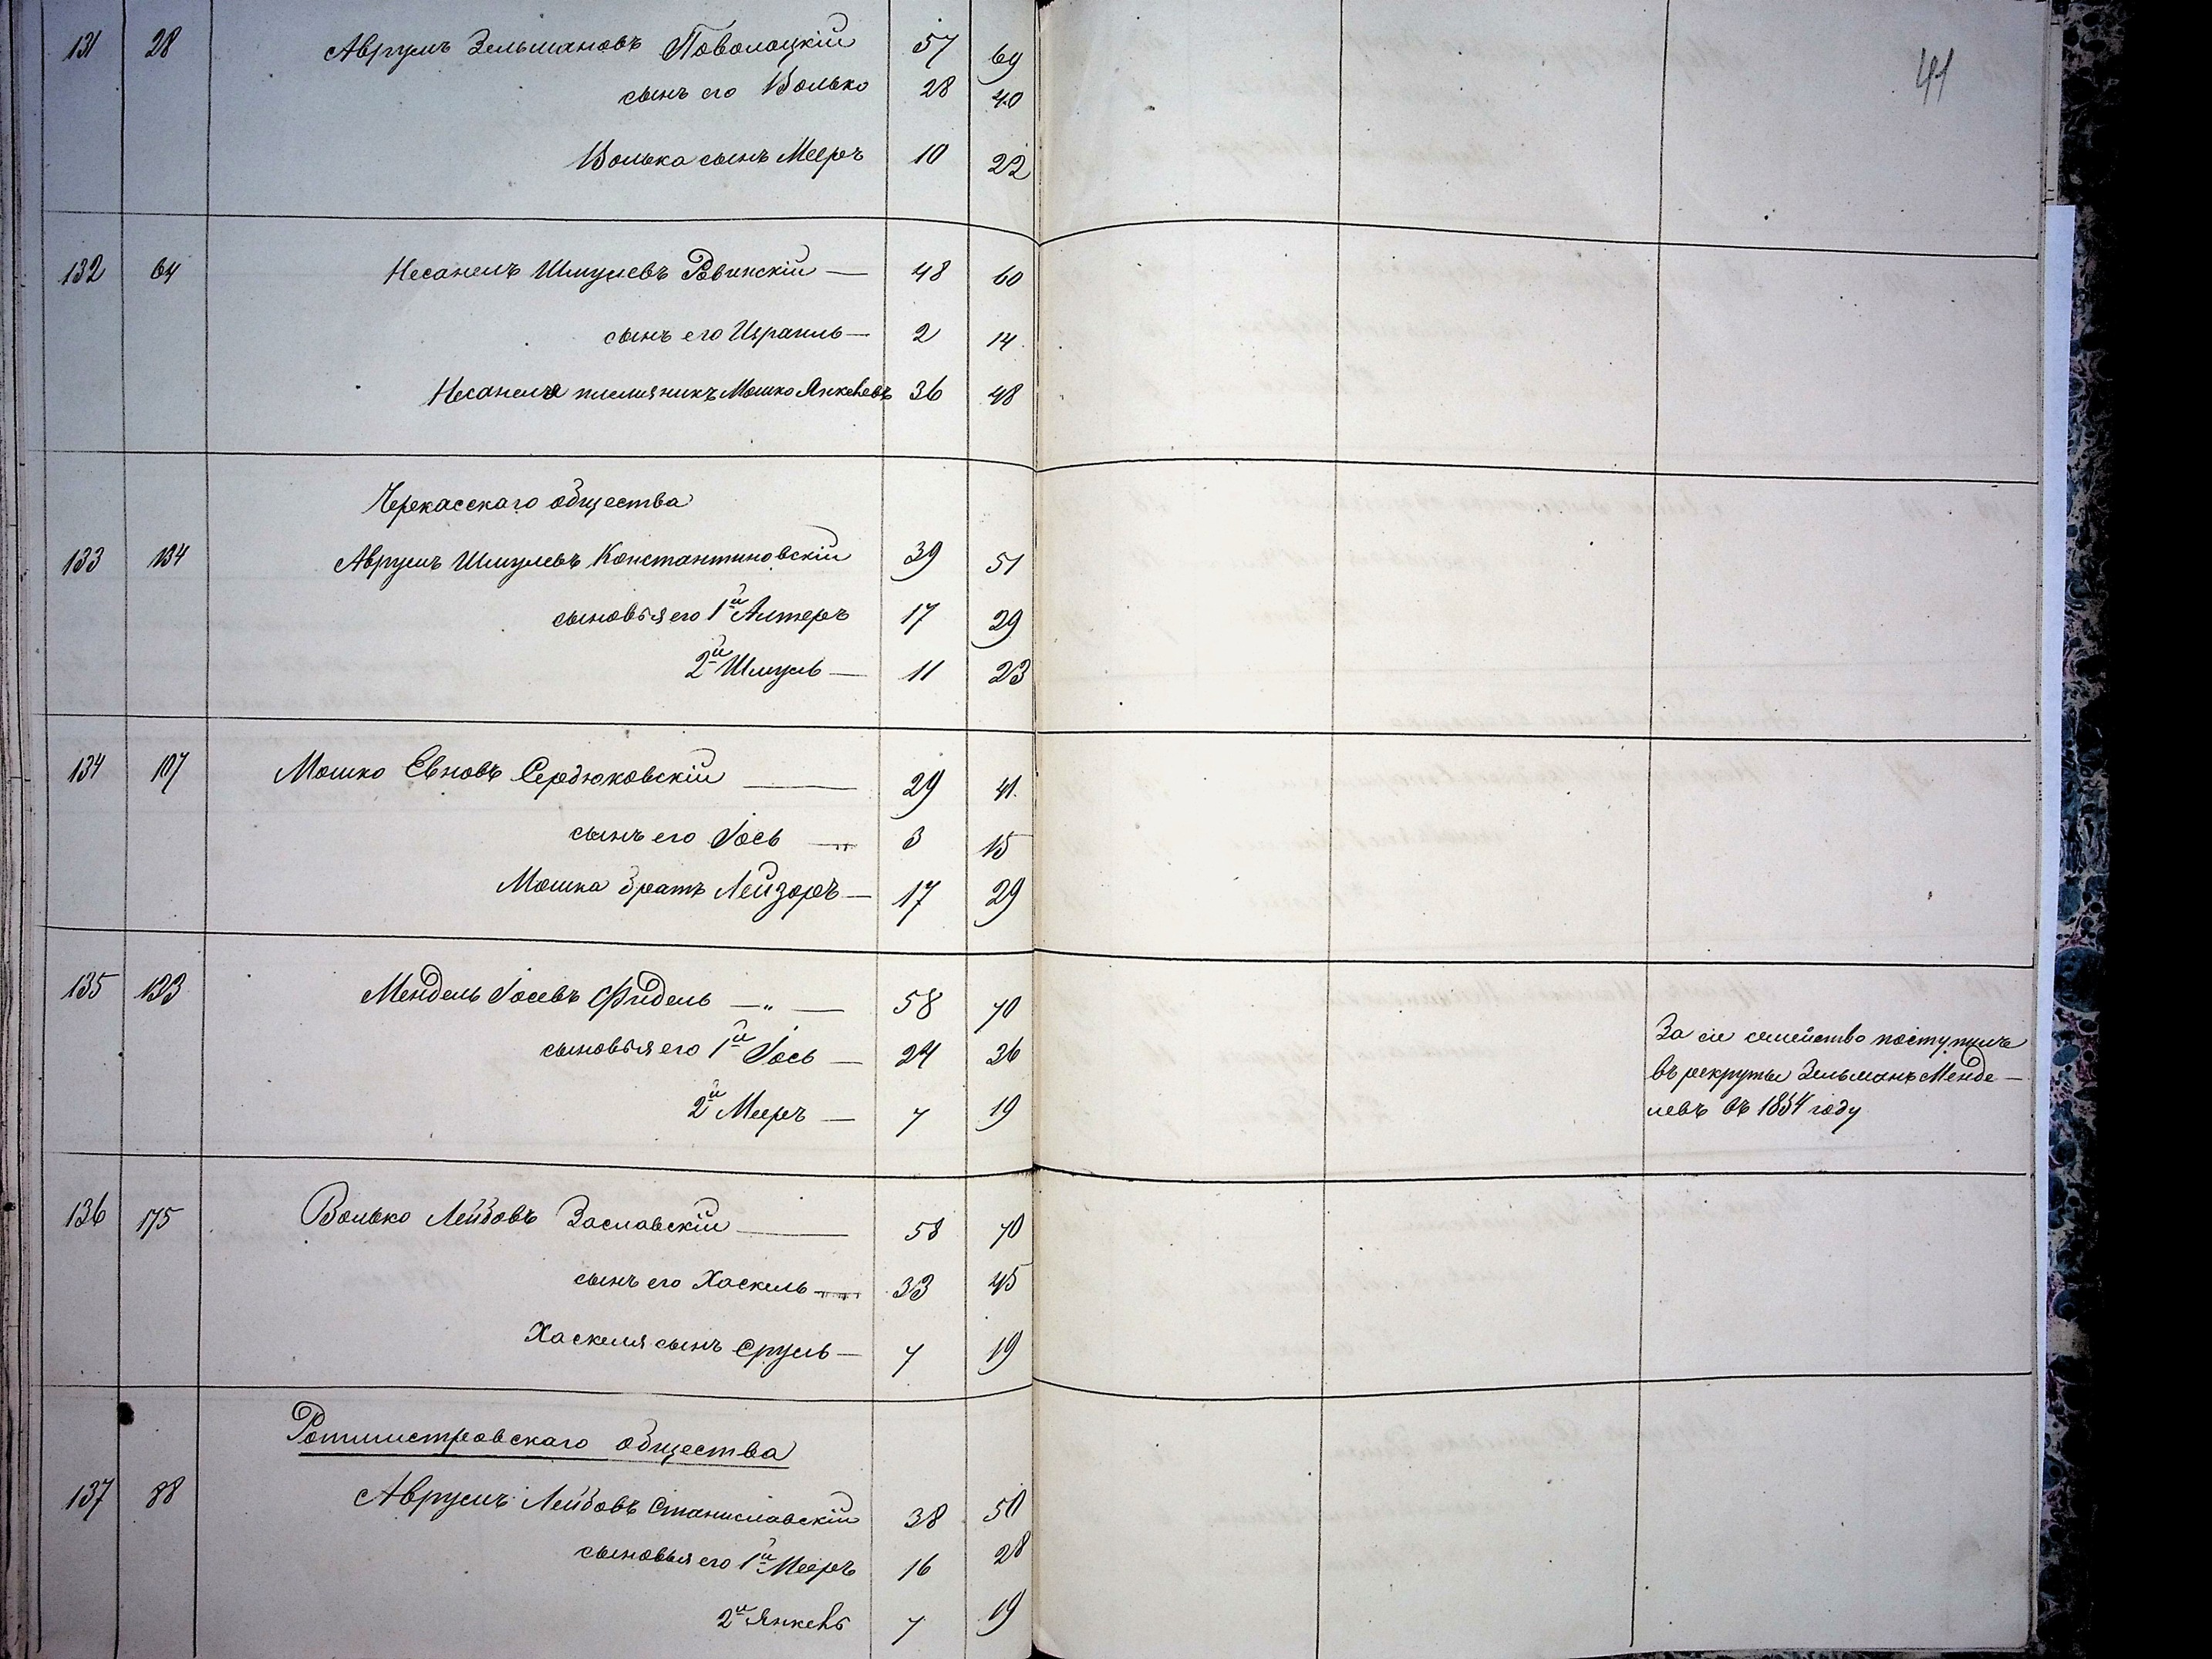 131 28 Аврумъ Зельмановъ Поволоцкій 57 69
сынъ его Волько 28 40
Волька сынъ Мееръ 10 22
41
132 64 Несанель Шмулевъ Ровинскій — 48 60
сынъ его Израиль — 2 14
Несанеля племяникъ Мошко Янкелевъ 36 48
Черкасскаго общества
133 134 Аврумъ Шмулевъ Константиновскій 39 51
сыновья его 1й Алтеръ 17 29
2й Шмуль — 11 23
134 107 Мошко Евновъ Сердюковскій — 29 41
сынъ его Іось — 3 15
Мошка братъ Лейзоръ — 17 29
135 133 Мендель Іосевъ Фидель — " — 58 70
сыновья его 1й Іось — 24 26
2й Мееръ — 7 19
За сіе семейство поступилъ
въ рекруты Зельманъ Менде-
левъ въ 1854 году
136 175 Волько Лейбовъ Заславскій — 58 70
сынъ его Хаскель — 33 45
Хаскеля сынъ Сруль — 7 19
Ротмистровскаго общества
137 88 Аврумъ Лейбовъ Станиславскій 38 50
сыновья его 1й Мееръ 16 28
2й Янкель 7 19